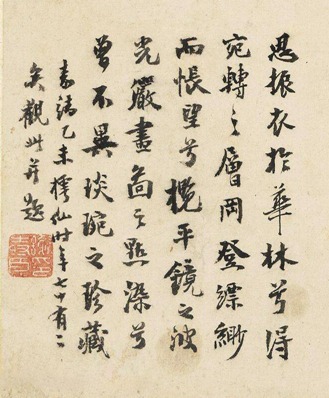 思振衣於華林兮得
宛轉之層岡登縹緲
而悵望兮攬平鏡之波
光嚴畫啚之點染兮
曾不異琰琬之珍藏
嘉靖乙未樗仙時年七十有二
矣觀此并題